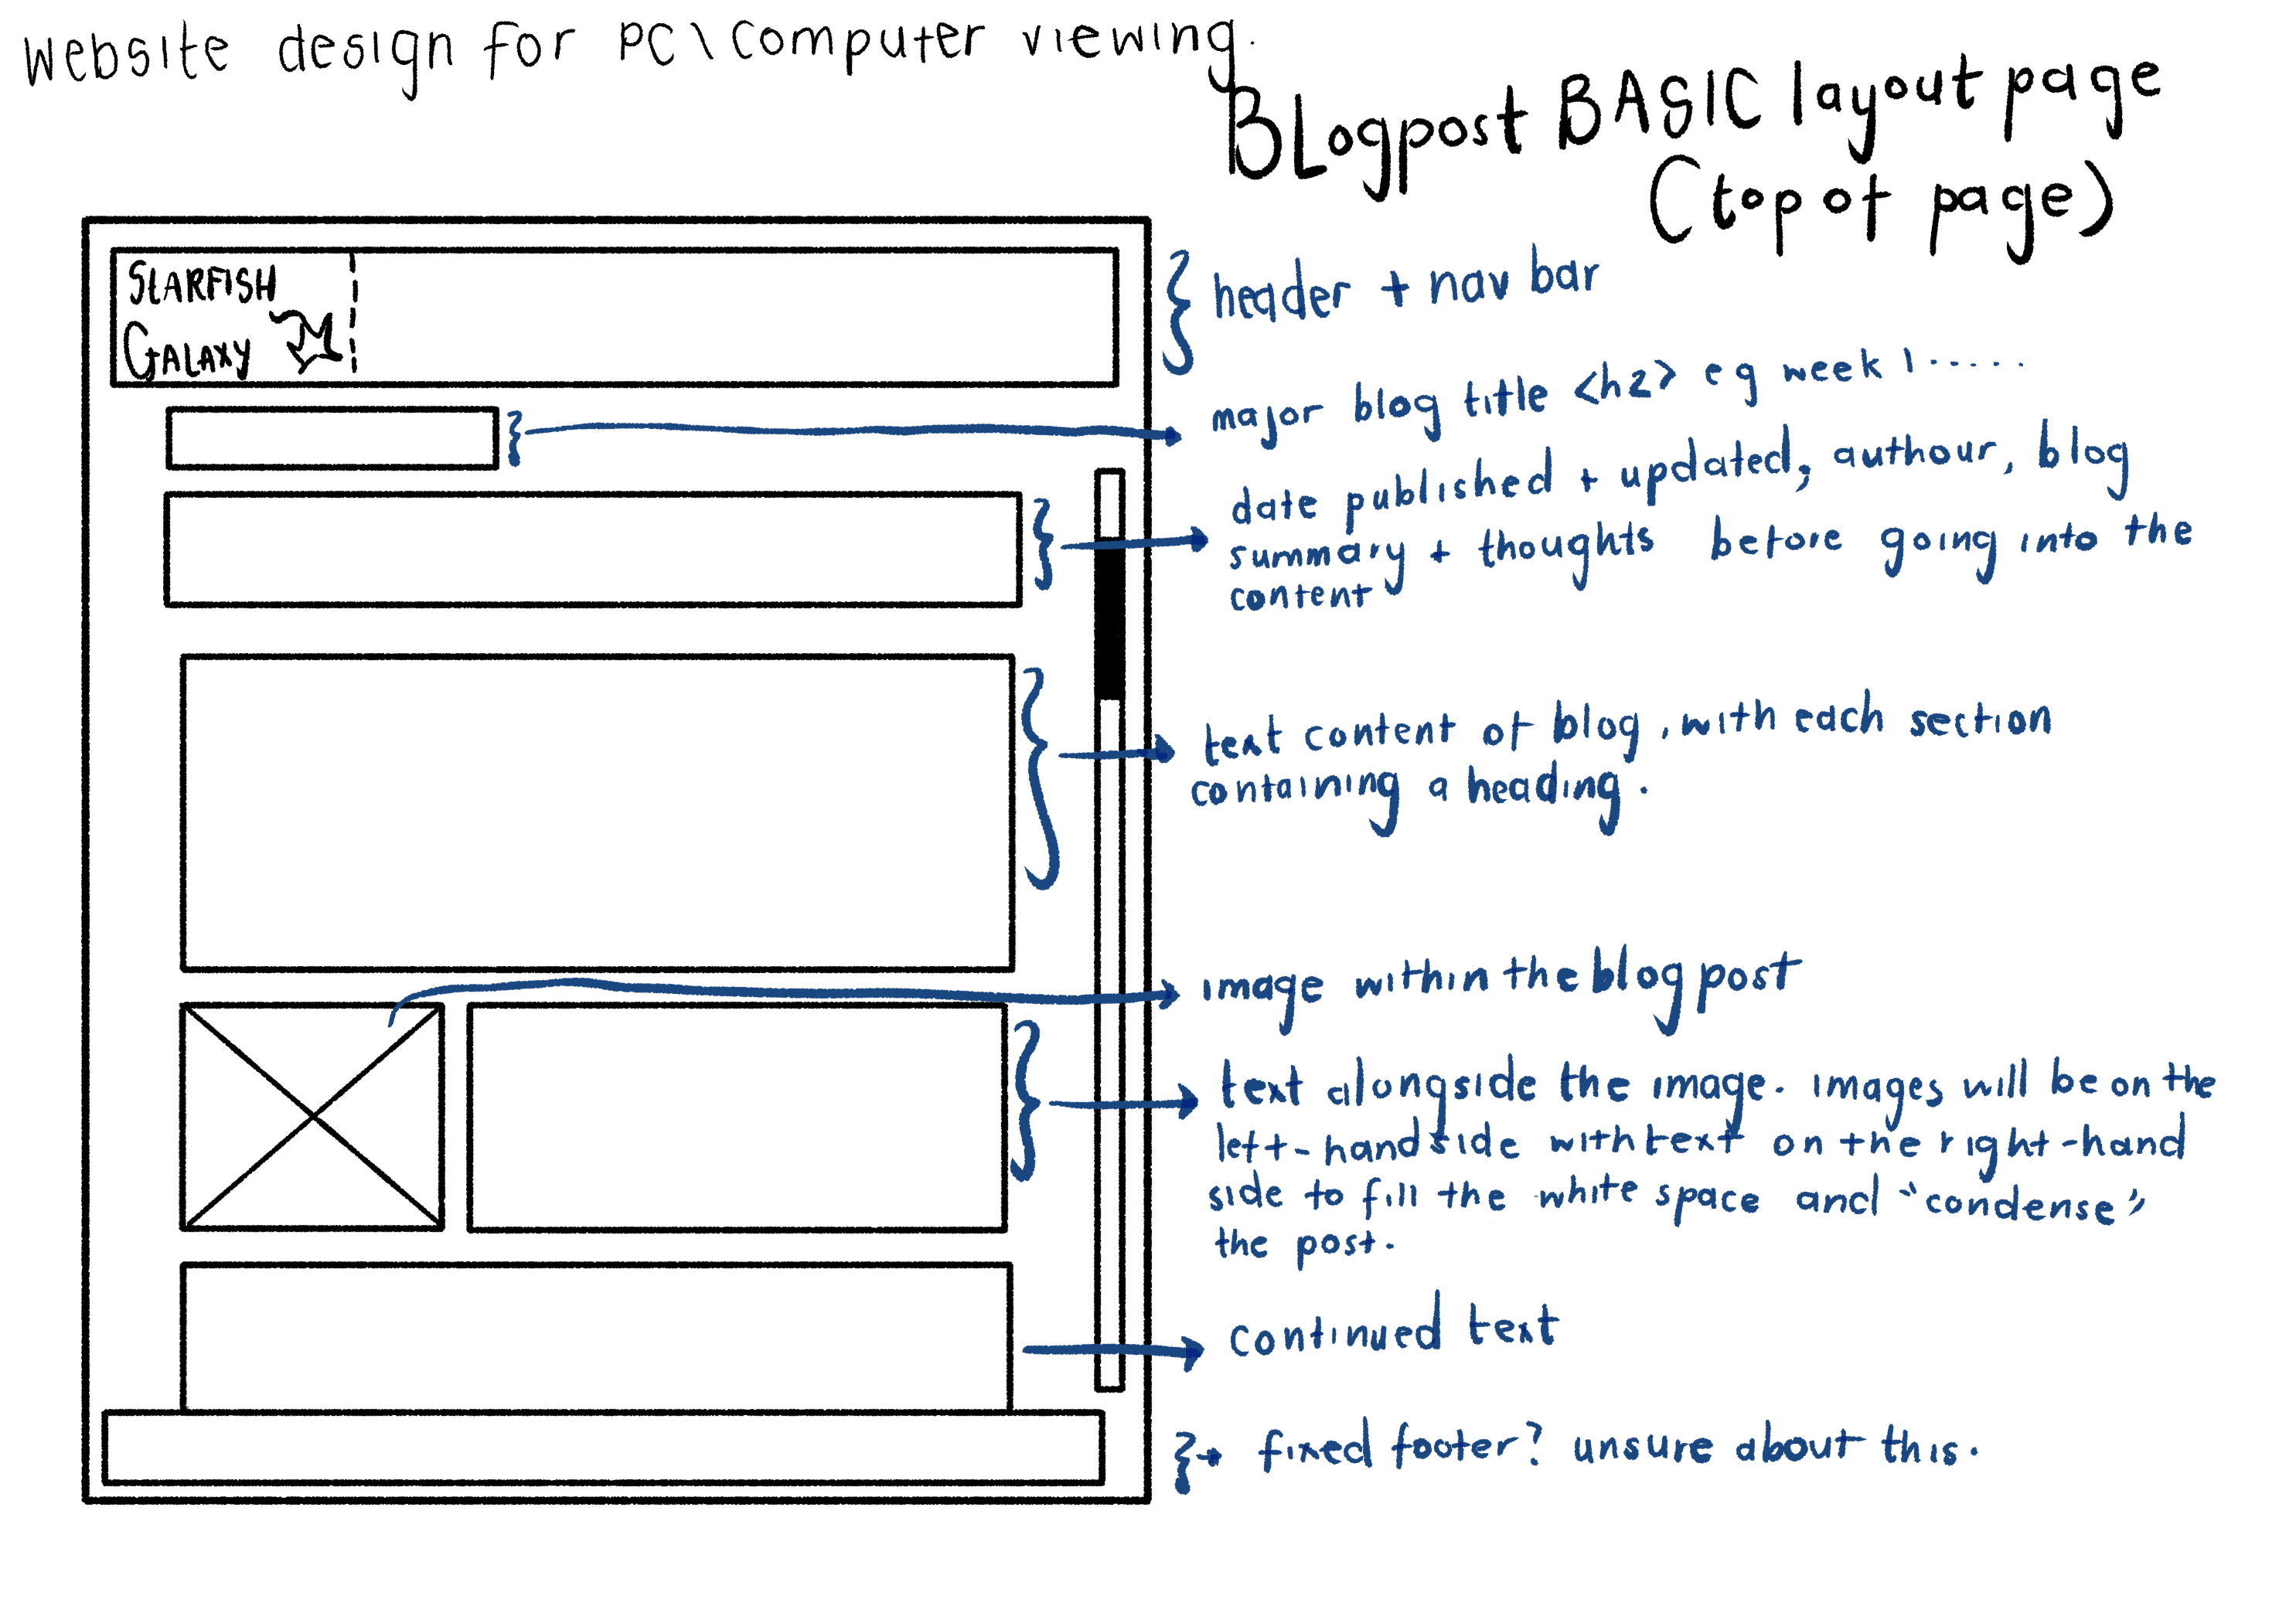 Website design for PC\Computer viewing.
BLogpost BASIC layout page
(top of page)
STARFISH
GALAXY
header + nav bar
major blog title <h2> eg week 1 .....
date published + updated, authour, blog
summary + thoughts before going into the
content
text content of blog, with each section
containing a heading.
image within the blog post
text alongside the image. images will be on the
left-hand side with text on the right-hand
side to fill the white space and "condense"
the post.
continued text
fixed footer? unsure about this.